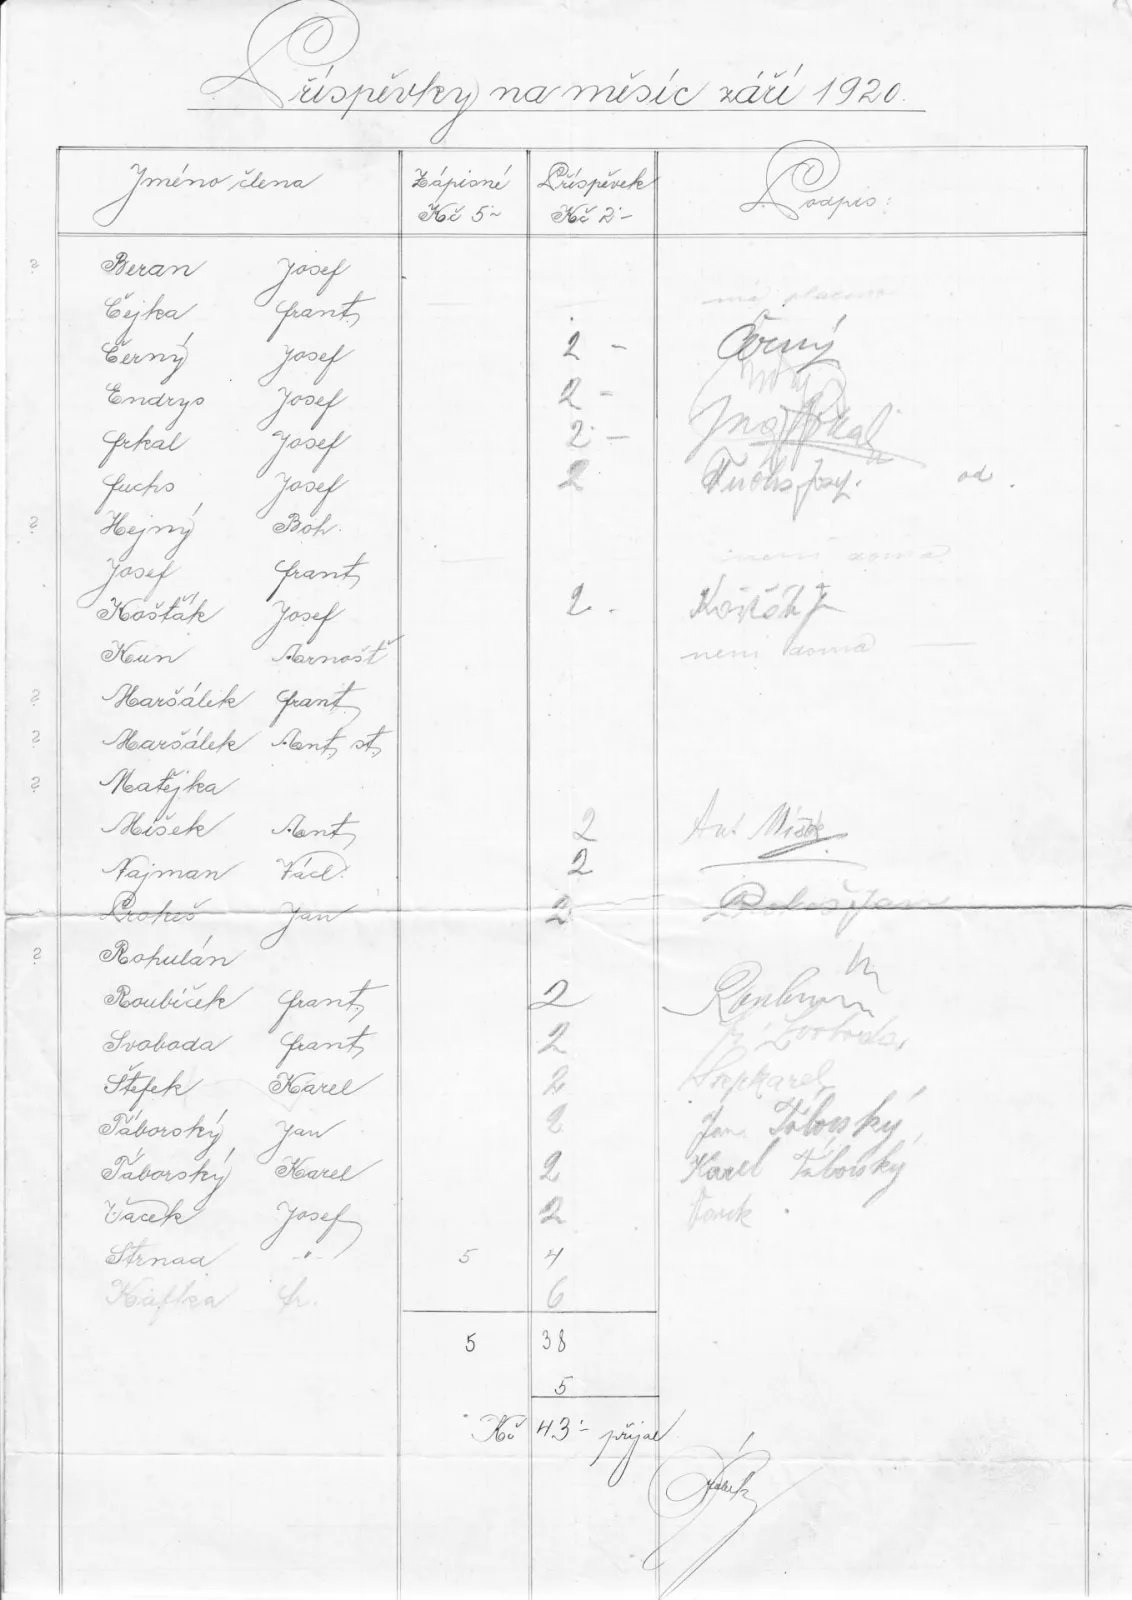 Příspěvky na měsíc září 1920.
Jméno člena Zápisné Kč 5~ Příspěvek Kč 2·- Podpis:
? Beran Josef
Čejka Frant, — — má placeno
Černý Josef 2 – Černý
Endrys Josef 2 –
Frkal Josef 2 – Frkal
Fuchs Josef 2 Fuchs Josef. od.
? Hejný Boh.
Josef Frant, — doma
Košťák Josef 2 . Košťák J
Kun Arnošt není doma —
? Maršálek Frant,
? Maršálek Ant, st,
? Matějka
Míšek Ant, 2 Ant Míšek
Najman Václ. 2
Prokeš Jan 2 Prokeš Jan
? Rohulán
Roubíček Frant, 2
Svoboda Frant, 2 Fr. Svoboda.
Štefek Karel 2
Táborský Jan 2 Jan Táborský
Táborský Karel 2 Karel Táborský
Vacek Josef 2 Vacek.
Strnad -"- 5 4
Kafka Fr. 6
5 38
5
Kč 43·- přijal